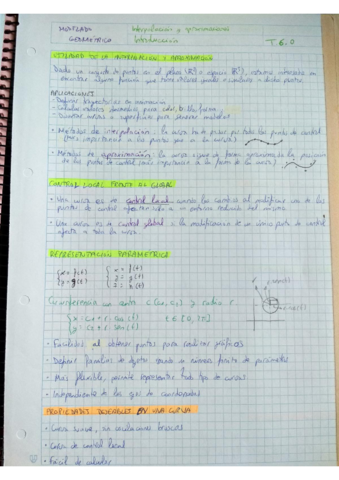 MODELADO
GEOMÉTRICO
Interpolación y aproximación
Introducción
T 6.0
UTILIDAD DE LA INTERPOLACIÓN Y APROXIMACIÓN
Dado un conjunto de puntos en el plano (R²) o espacio (R³), estamos interesados en
encontrar alguna función que
APLICACIONES
- Definir trayectorias en animación
- Calcular valores
- Generar curvas o superficies para generar modelos
• Métodos de interpolación: la curva ha de pasar por todos los puntos de control
(más importancia a los puntos que a la curva)
• Métodos de aproximación: la curva sigue de forma aproximada la posición
de los puntos de control (más importancia a la forma de la curva)
CONTROL LOCAL FRENTE AL GLOBAL
• Una curva es de control local cuando los cambios al modificar uno de los
puntos de control afectan solo a un entorno reducido del mismo
• Una curva es de control global si la modificación de un único punto de control
afecta a toda la curva
REPRESENTACIÓN PARAMÉTRICA
x = f(t)
y = g(t)
x = f(t)
y = g(t)
z = h(t)
Circunferencia con centro C(cx, cy) y radio r
x = cx + r · cos(t)
y = cy + r · sin(t)
t ∈ [0, 2π]
• Facilidad al obtener puntos para realizar gráficos
• Definir familias de objetos usando un número finito de parámetros
• Más flexible, permite representar todo tipo de curvas
• Independiente de los ejes de coordenadas
PROPIEDADES DESEABLES EN UNA CURVA
• Curva suave, sin oscilaciones bruscas
• Curva de control local
• Fácil de calcular